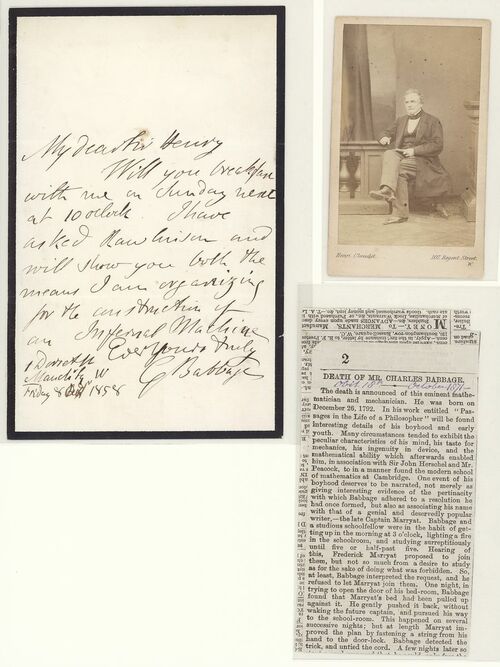 My dear Sir Henry
Will you breakfast
with me on Sunday next
at 10 oclock I have
asked Rawlinson and
will show you both the
means I am organizing
for the construction of
an Infernal Machine
Ever yours truly
C Babbage
1 Dorset St
Manch Sq W
Friday 8 1858
Henri Claudet. 107, Regent Street.
W.
MONEY.—To MERCHANTS,
ADVANCES made upon every
2
DEATH OF MR. CHARLES BABBAGE,
obiit 18th October 1871-
The death is announced of this eminent mathe-
matician and mechanician. He was born on
December 26, 1792. In his work entitled "Pas-
sages in the Life of a Philosopher" will be found
interesting details of his boyhood and early
youth. Many circumstances tended to exhibit the
peculiar characteristics of his mind, his taste for
mechanics, his ingenuity in device, and the
mathematical ability which afterwards enabled
him, in association with Sir John Herschel and Mr.
Peacock, to in a manner found the modern school
of mathematics at Cambridge. One event of his
boyhood deserves to be narrated, not merely as
giving interesting evidence of the pertinacity
with which Babbage adhered to a resolution he
had once formed, but also as associating his name
with that of a genial and deservedly popular
writer,—the late Captain Marryat. Babbage and
a studious schoolfellow were in the habit of get-
ting up in the morning at 3 o'clock, lighting a fire
in the schoolroom, and studying surreptitiously
until five or half-past five. Hearing of
this, Frederick Marryat proposed to join
them, but not so much from a desire to study
as for the sake of doing what was forbidden. So,
at least, Babbage interpreted the request, and he
refused to let Marryat join them. One night, in
trying to open the door of his bed-room, Babbage
found that Marryat's bed had been pulled up
against it. He gently pushed it back, without
waking the future captain, and pursued his way
to the schoolroom. This happened on several
successive nights; but at length Marryat im-
proved the plan by fastening a string from his
hand to the door-lock. Babbage detected the
trick, and untied the cord. A few nights later so